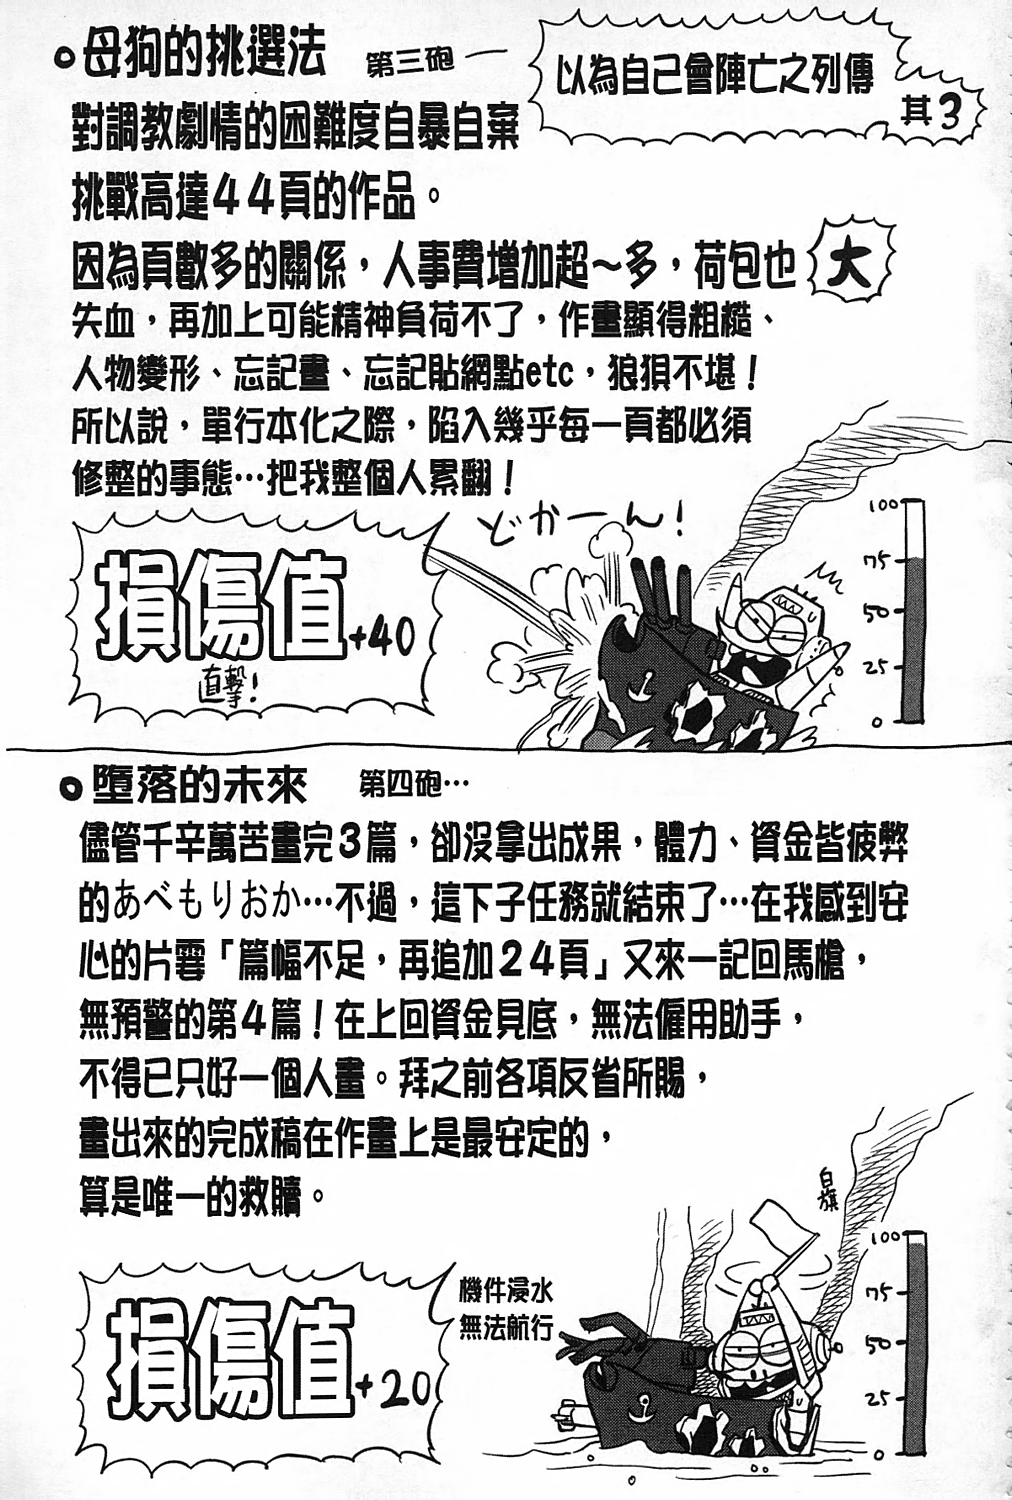 以為自己會陣亡之列傳
其3
母狗的挑選法　第三砲－
對調教劇情的困難度自暴自棄
挑戰高達44頁的作品。
因為頁數多的關係，人事費增加超～多，荷包也大
失血，再加上可能精神負荷不了，作畫顯得粗糙、
人物變形、忘記畫、忘記貼網點etc，狼狽不堪！
所以說，單行本化之際，陷入幾乎每一頁都必須
修整的事態…把我整個人累翻！
どかーん！
損傷值+40
直擊！
100
75
50
25
0
墮落的未來　第四砲…
儘管千辛萬苦畫完3篇，卻沒拿出成果，體力、資金皆疲弊
的あべもりおか…不過，這下子任務就結束了…在我感到安
心的片霎「篇幅不足，再追加24頁」又來一記回馬槍，
無預警的第4篇！在上回資金見底，無法僱用助手，
不得已只好一個人畫。拜之前各項反省所賜，
畫出來的完成稿在作畫上是最安定的，
算是唯一的救贖。
白旗
機件浸水
無法航行
損傷值+20
100
75
50
25
0